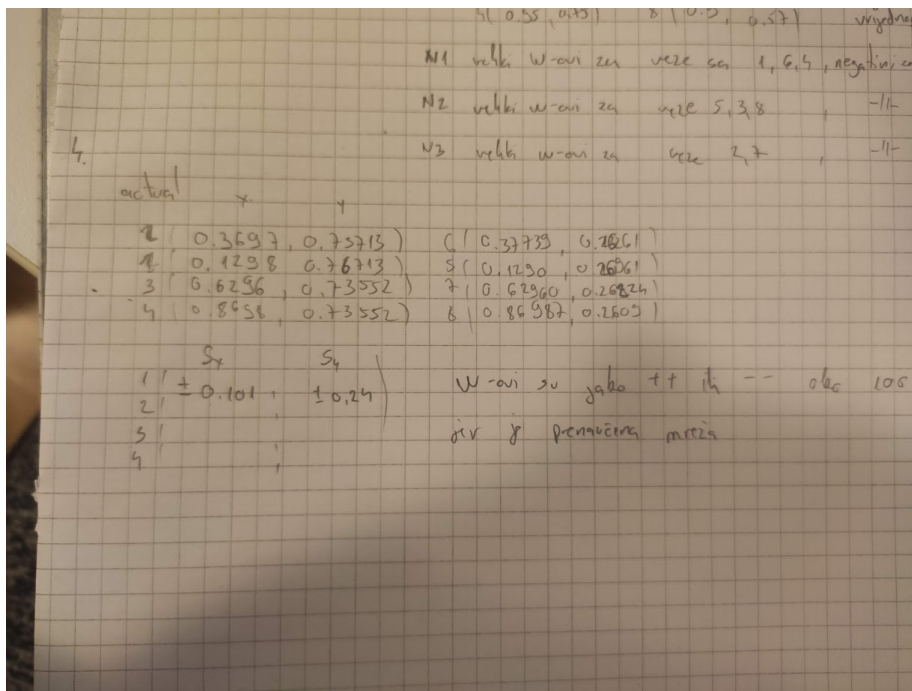 4(0.35, 0.73) 8(0.9, 0.57)
N1 veliki w-ovi za veze sa 1, 6, 4, negativni
N2 veliki w-ovi za veze 5, 3, 8, -||-
N3 veliki w-ovi za veze 2, 7, -||-
4.
actual x y
( 0.3697, 0.75713) 6( 0.37739, 0.26261)
( 0.1298 0.76713) 5( 0.1290, 0.26961)
3 ( 0.6296, 0.73552) 7( 0.62960, 0.26824)
4 ( 0.8698, 0.73552) 8( 0.86987, 0.2609)
Sx Sy
1 ( ± 0.101, ± 0,24 ) W-ovi su jako ++ ili -- oko 100
2
3 jer je prenaučena mreža
4